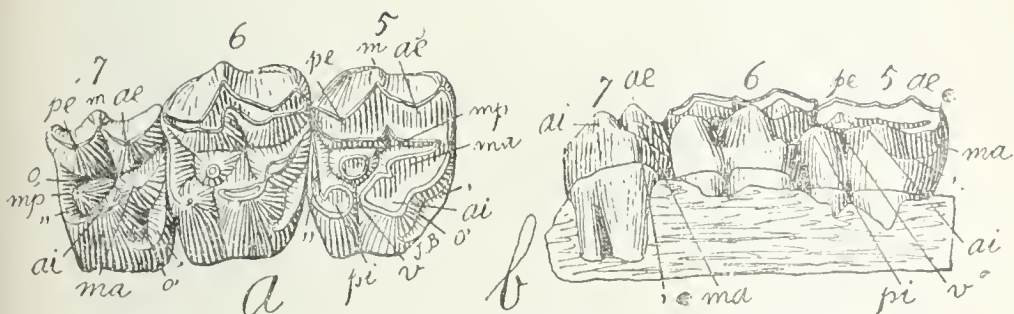 5
6
pe m ae
7
pe m ae
mp
ma
o,
mp,
"
ai
ai
ma o'
"
pi
v
J.B
o'
a
7 ae
6
pe 5 ae
ai
ma
ai
ma
pi
v
b